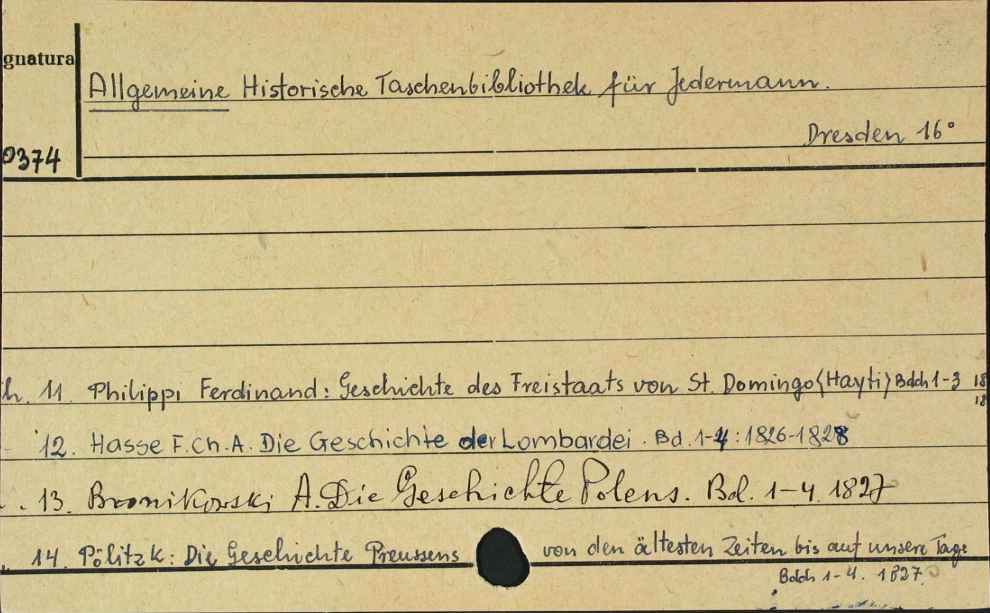 gnatura
Allgemeine Historische Taschenbibliothek für Jedermann.
Dresden 16°
0374
h. 11. Philippi Ferdinand: Geschichte des Freistaats von St. Domingo (Hayti) Bdch 1-3 18
18
12. Hasse F. Ch. A. Die Geschichte der Lombardei. Bd. 1-4: 1826-1828
13. Bronikowski A. Die Geschichte Polens. Bd. 1-4. 1827
14. Pölitz K: Die Geschichte Preussens von den ältesten Zeiten bis auf unsere Tage
Bdch 1-4. 1827.